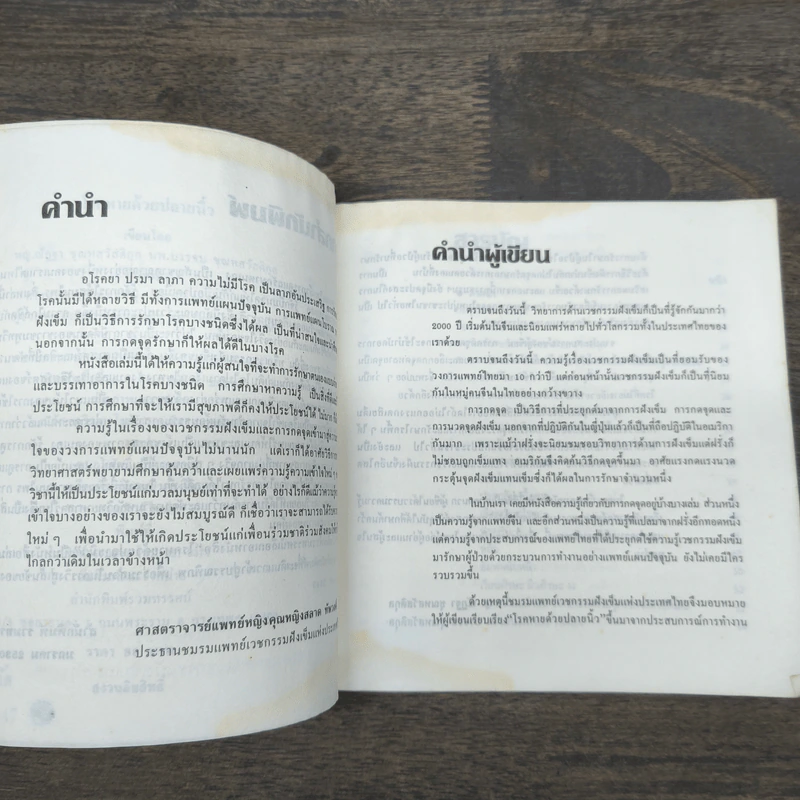 คำนำ
อโรคยา ปรมา ลาภา ความไม่มีโรค เป็นลาภอันประเสริฐ
โรคนั้นมีได้หลายวิธี มีทั้งการแพทย์แผนปัจจุบัน การแพทย์แผนโบราณ
ฝังเข็ม ก็เป็นวิธีการรักษาโรคบางชนิดซึ่งได้ผล เป็นที่น่าสนใจและ
นอกจากนั้น การกดจุดรักษาก็ให้ผลได้ดีในบางโรค
หนังสือเล่มนี้ได้ให้ความรู้แก่ผู้สนใจที่จะทำการรักษาตนเอง
และบรรเทาอาการในโรคบางชนิด การศึกษาหาความรู้ เป็นสิ่งที่
ประโยชน์ การศึกษาที่จะให้เรามีสุขภาพดีก็คงให้ประโยชน์ได้
ความรู้ในเรื่องของเวชกรรมฝังเข็มและการกดจุดเข้ามาสู่
ใจของวงการแพทย์แผนปัจจุบันไม่นานนัก แต่เราก็ได้อาศัยวิธีการ
วิทยาศาสตร์พยายามศึกษาค้นคว้าและเผยแพร่ความรู้ความเข้าใจใหม่ ๆ
วิชานี้ให้เป็นประโยชน์แก่มวลมนุษย์เท่าที่จะทำได้ อย่างไรก็ดีแม้ว่าความรู้
เข้าใจบางอย่างของเราจะยังไม่สมบูรณ์ดี ก็เชื่อว่าเราจะสามารถได้
ใหม่ ๆ เพื่อนำมาใช้ให้เกิดประโยชน์แก่เพื่อนร่วมชาติร่วมสังคมได้
ไกลกว่าเดิมในเวลาข้างหน้า
ศาสตราจารย์แพทย์หญิงคุณหญิงสลาด
ประธานชมรมแพทย์เวชกรรมฝังเข็มแห่งประเทศ
คำนำผู้เขียน
ตราบจนถึงวันนี้ วิทยาการด้านเวชกรรมฝังเข็มก็เป็นที่รู้จักกันมากว่า
2000 ปี เริ่มต้นในจีนและนิยมแพร่หลายไปทั่วโลกรวมทั้งในประเทศไทยของ
เราด้วย
ตราบจนถึงวันนี้ ความรู้เรื่องเวชกรรมฝังเข็มเป็นที่ยอมรับของ
วงการแพทย์ไทยมา 10 กว่าปี แต่ก่อนหน้านั้นเวชกรรมฝังเข็มก็เป็นที่นิยม
กันในหมู่คนจีนในไทยอย่างกว้างขวาง
การกดจุด เป็นวิธีการที่ประยุกต์มาจากการฝังเข็ม การกดจุดและ
การนวดจุดฝังเข็ม นอกจากที่ปฏิบัติกันในญี่ปุ่นแล้วก็เป็นที่ถือปฏิบัติในอเมริกา
กันมาก เพราะแม้ว่าฝรั่งจะนิยมชมชอบวิทยาการด้านการฝังเข็มแต่ฝรั่งก็
ไม่ชอบถูกเข็มแทง อเมริกันจึงคิดค้นวิธีกดจุดขึ้นมา อาศัยแรงกดแรงนวด
กระตุ้นจุดฝังเข็มแทนเข็มซึ่งก็ได้ผลในการรักษาจำนวนหนึ่ง
ในบ้านเรา เคยมีหนังสือความรู้เกี่ยวกับการกดจุดอยู่บ้างบางเล่ม ส่วนหนึ่ง
เป็นความรู้จากแพทย์จีน และอีกส่วนหนึ่งเป็นความรู้ที่แปลมาจากฝรั่งอีกทอดหนึ่ง
แต่ความรู้จากประสบการณ์ของแพทย์ไทยที่ได้ประยุกต์ใช้ความรู้เวชกรรมฝังเข็ม
มารักษาผู้ป่วยด้วยกระบวนการทำงานอย่างแพทย์แผนปัจจุบัน ยังไม่เคยมีใคร
รวบรวมขึ้น
ด้วยเหตุนี้ชมรมแพทย์เวชกรรมฝังเข็มแห่งประเทศไทยจึงมอบหมาย
ให้ผู้เขียนเรียบเรียง"โรคหายด้วยปลายนิ้ว"ขึ้นมาจากประสบการณ์การทำงาน